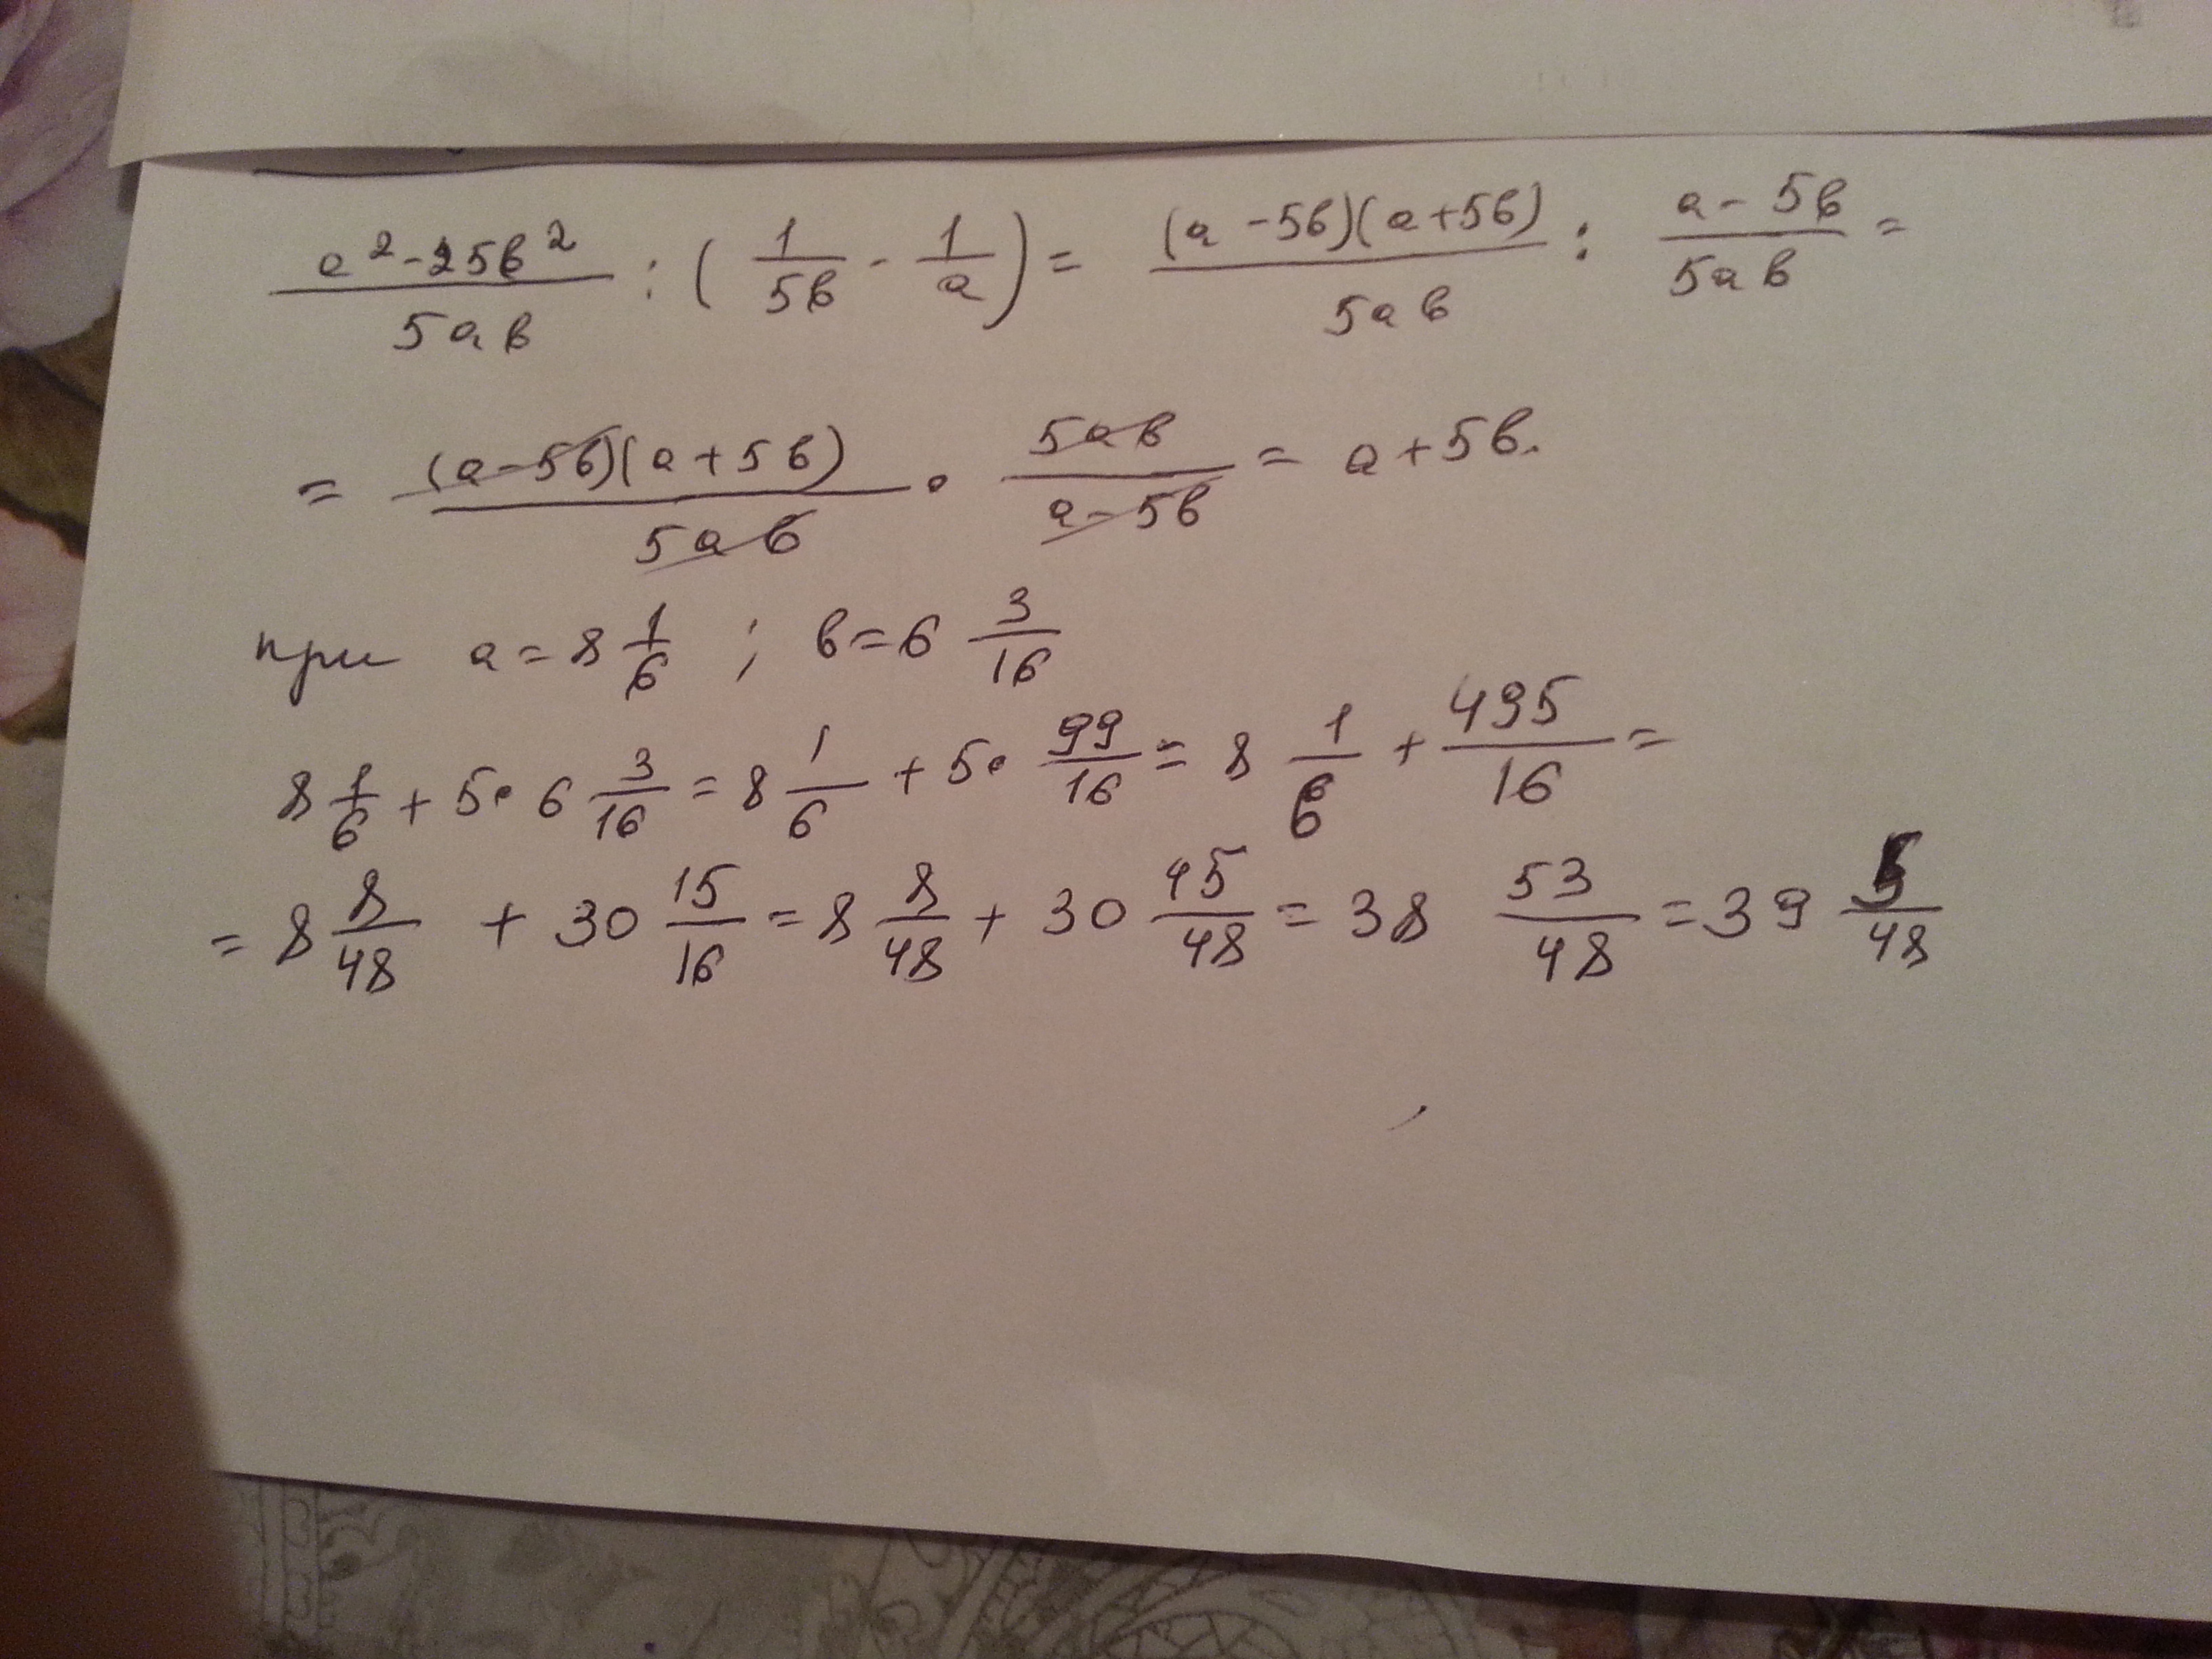 (a² - 25в²)/(5ав) : (1/(5в) - 1/а) = ((а - 5в)(а + 5в))/(5ав) : (а - 5в)/(5ав) =
= ((а - 5в)(а + 5в))/(5ав) · (5ав)/(а - 5в) = а + 5в.
при а = 8 1/6 ; в = 6 3/16
8 1/6 + 5 · 6 3/16 = 8 1/6 + 5 · 99/16 = 8 1/6 + 495/16 =
= 8 8/48 + 30 15/16 = 8 8/48 + 30 45/48 = 38 53/48 = 39 5/48